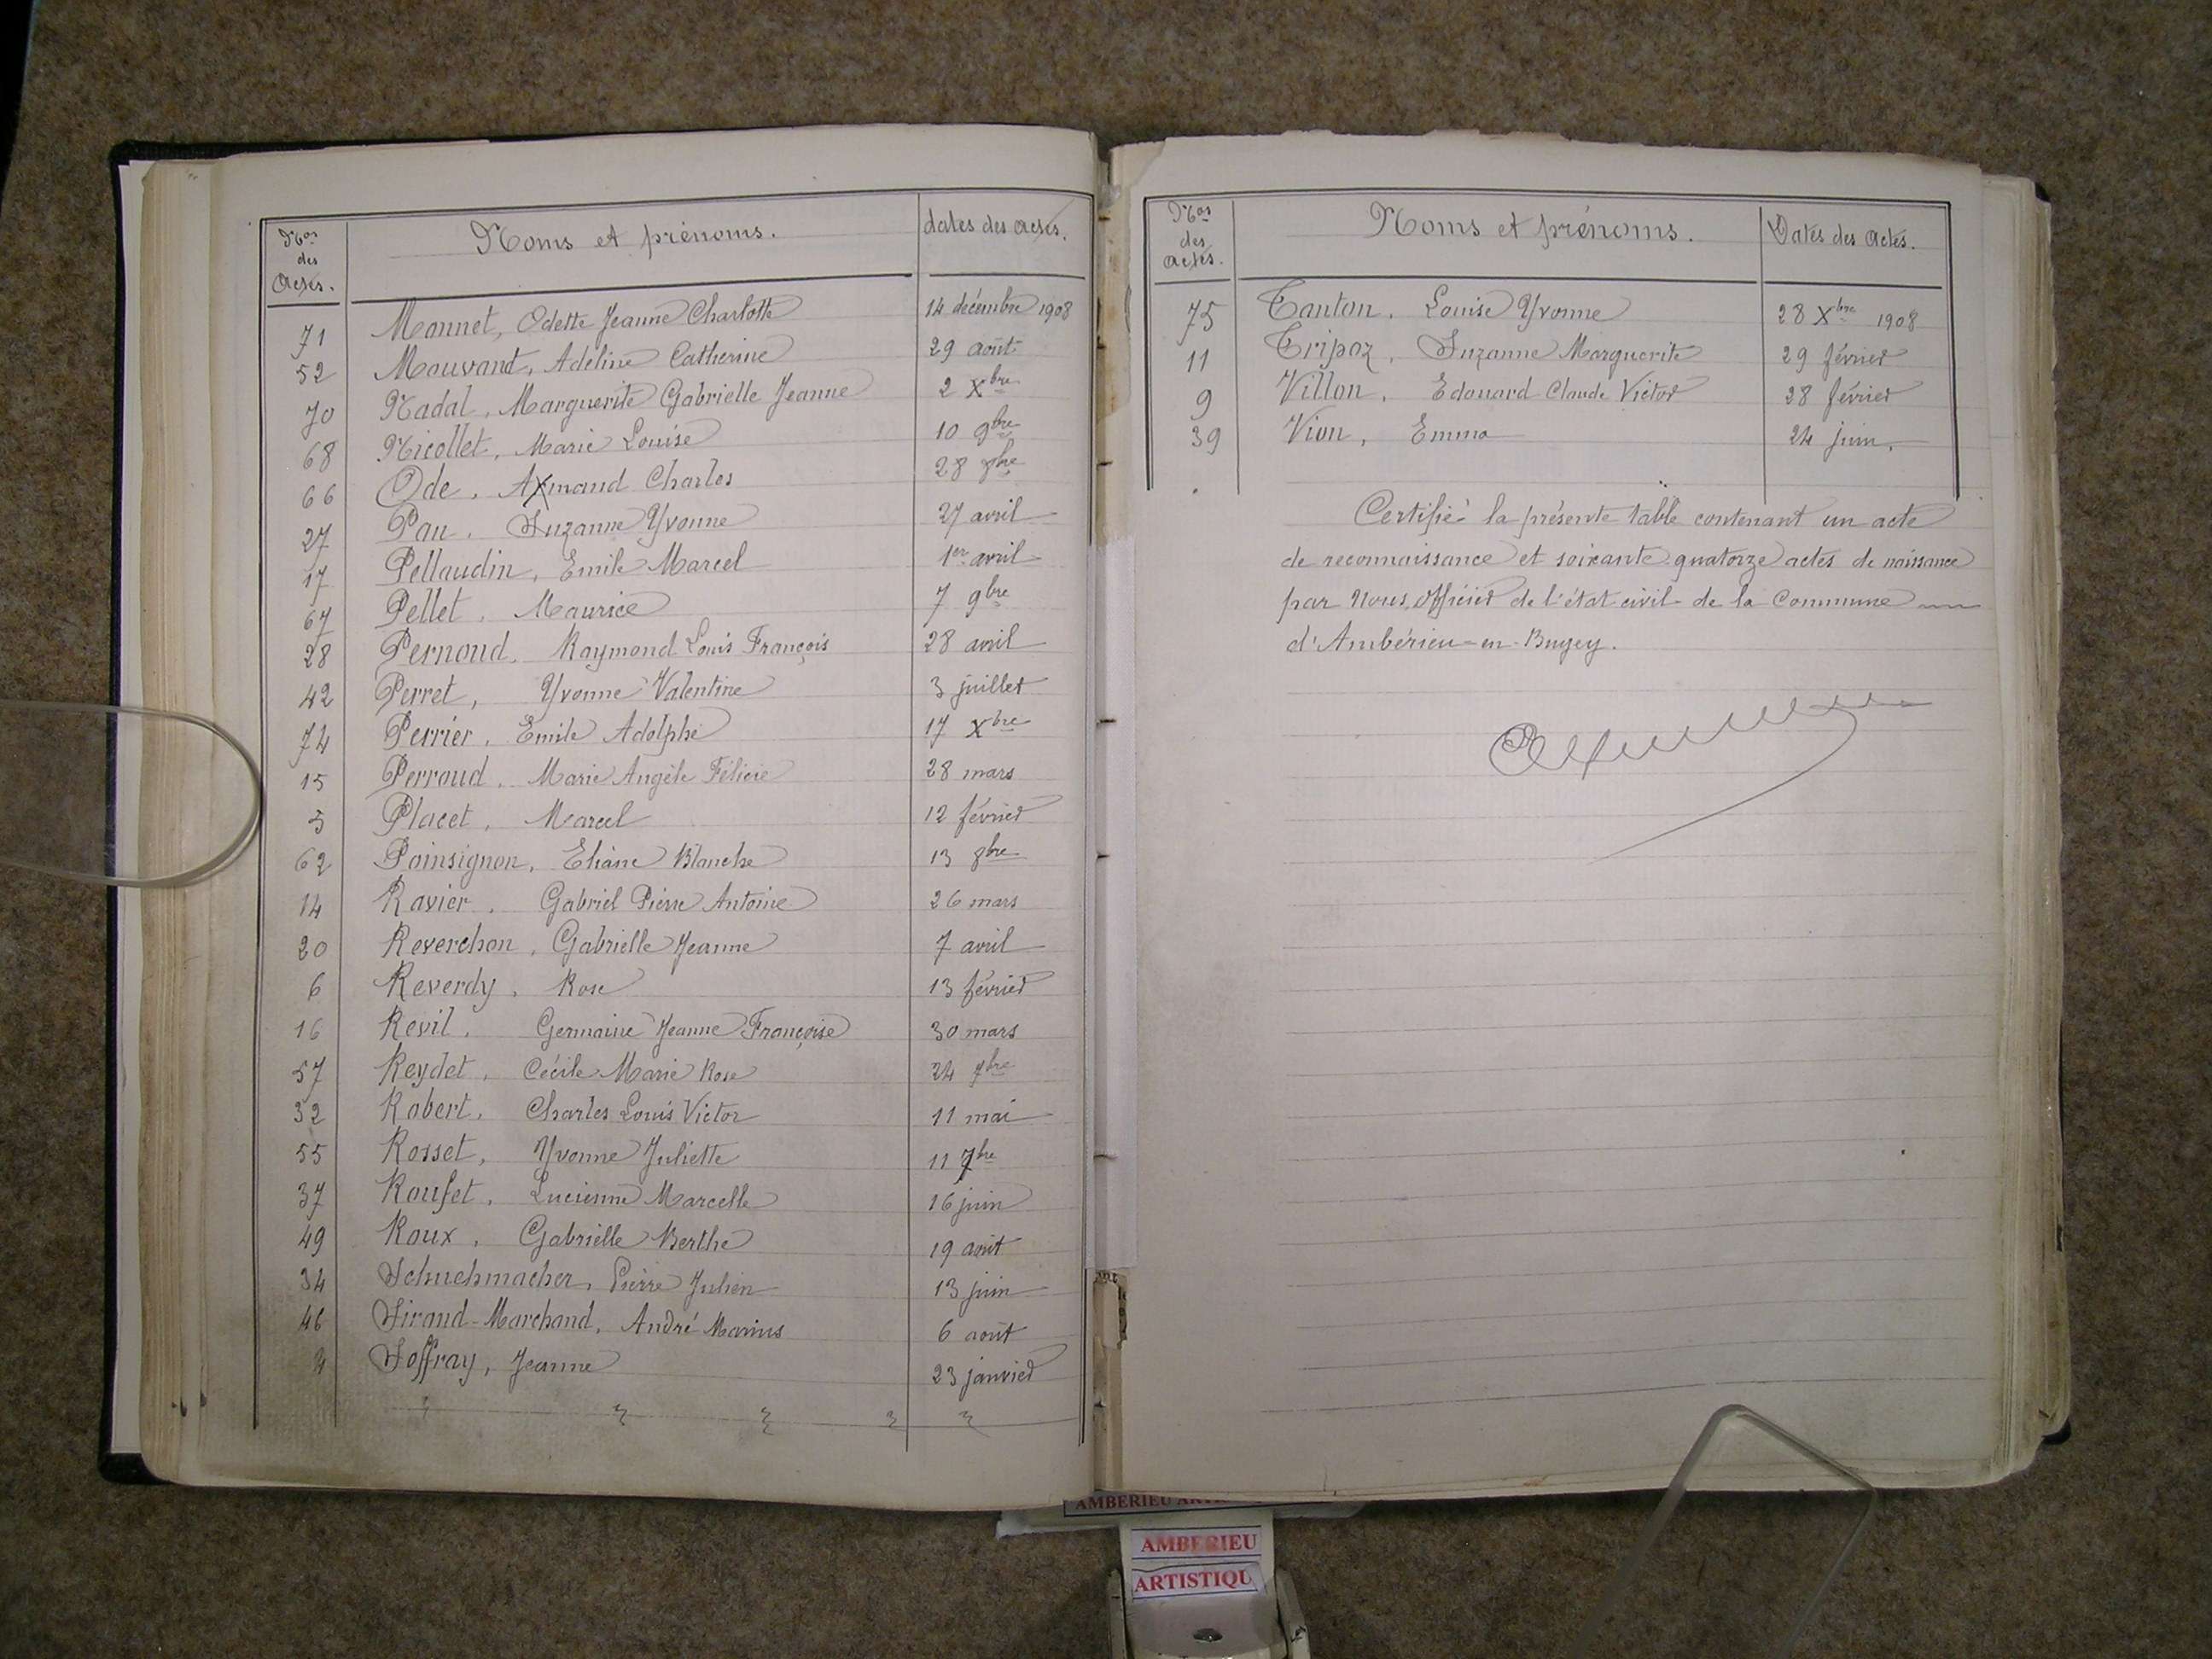 Nos des Actes. Noms et prénoms. dates des actes.
71 Monnet, Odette Jeanne Charlotte 14 décembre 1908
52 Mouvant, Adéline Catherine 29 août
70 Nadal, Marguerite Gabrielle Jeanne 2 Xbre
68 Nicollet, Marie Louise 10 9bre
66 Ode, Armand Charles 28 8bre
27 Pan, Suzanne Yvonne 27 avril
17 Pellaudin, Emile Marcel 1er avril
67 Pellet, Maurice 7 9bre
28 Pernoud, Raymond Louis François 28 avril
42 Perret, Yvonne Valentine 3 juillet
74 Perrier, Emile Adolphe 17 Xbre
15 Perroud, Marie Angèle Félicie 28 mars
5 Placet, Marcel 12 février
62 Poinsignon, Eliane Blanche 13 8bre
14 Ravier, Gabriel Pierre Antoine 26 mars
20 Reverchon, Gabrielle Jeanne 7 avril
6 Reverdy, Rose 13 février
16 Revil, Germaine Jeanne Françoise 30 mars
57 Reydet, Cécile Marie Rose 24 7bre
32 Robert, Charles Louis Victor 11 mai
55 Rosset, Yvonne Juliette 11 7bre
37 Roufet, Lucienne Marcelle 16 juin
49 Roux, Gabrielle Berthe 19 août
34 Schuchmacher, Pierre Julien 13 juin
46 Siraud-Marchand, André Marius 6 août
Soffray, Jeanne 23 janvier
Nos des actes. Noms et prénoms. Dates des Actes.
75 Tanton, Louise Yvonne 28 Xbre 1908
11 Tripoz, Suzanne Marguerite 29 février
9 Villon, Edouard Claude Victor 28 février
39 Vion, Emma 24 juin.
Certifié la présente table contenant un acte
de reconnaissance et soixante quatorze actes de naissance
par Nous, officier de l'état civil de la Commune
d'Ambérieu-en-Bugey.
AMBERIEU
AMBERIEU
ARTISTIQU